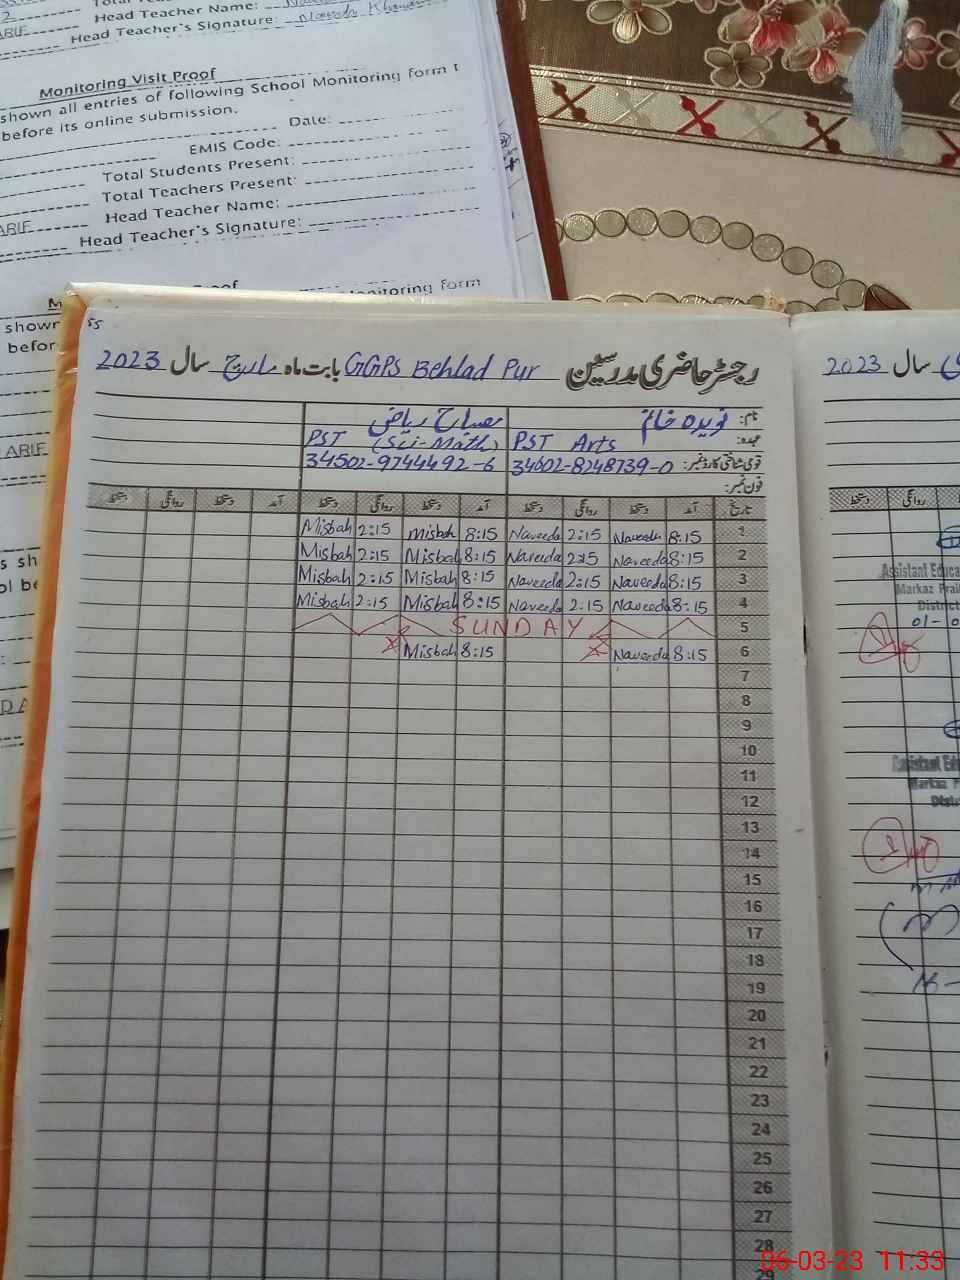 Head Teacher Name:
Head Teacher's Signature:
ARIF
Monitoring Visit Proof
shown all entries of following School Monitoring form t
before its online submission.
Date:
EMIS Code:
Total Students Present:
Total Teachers Present:
Head Teacher Name:
ARIF
Head Teacher's Signature:
Monitoring form
shown
befor
ARIF
55
رجسٹر حاضری مدرسین GGPS Behlad Pur بابت ماہ مارچ سال 2023
نام: نویدہ خانم مصباح ریاض
عہدہ: PST Arts PST (Sci-Math)
قومی شناختی کارڈ نمبر: 34602-8248739-0 34502-9744492-6
فون نمبر:
تاریخ آمد دستخط روانگی دستخط آمد دستخط روانگی دستخط آمد دستخط روانگی دستخط
1 8:15 Naveeda 2:15 Naveeda 8:15 Misbah 2:15 Misbah
2 8:15 Naveeda 2:15 Naveeda 8:15 Misbah 2:15 Misbah
3 8:15 Naveeda 2:15 Naveeda 8:15 Misbah 2:15 Misbah
4 8:15 Naveeda 2:15 Naveeda 8:15 Misbah 2:15 Misbah
5 SUNDAY
6 8:15 Naveeda 8:15 Misbah
7
8
9
10
11
12
13
14
15
16
17
18
19
20
21
22
23
24
25
26
27
28
29
سال 2023
روانگی دستخط
Assistant Educa
Markaz
Distric
01-0
06-03-23 11:33